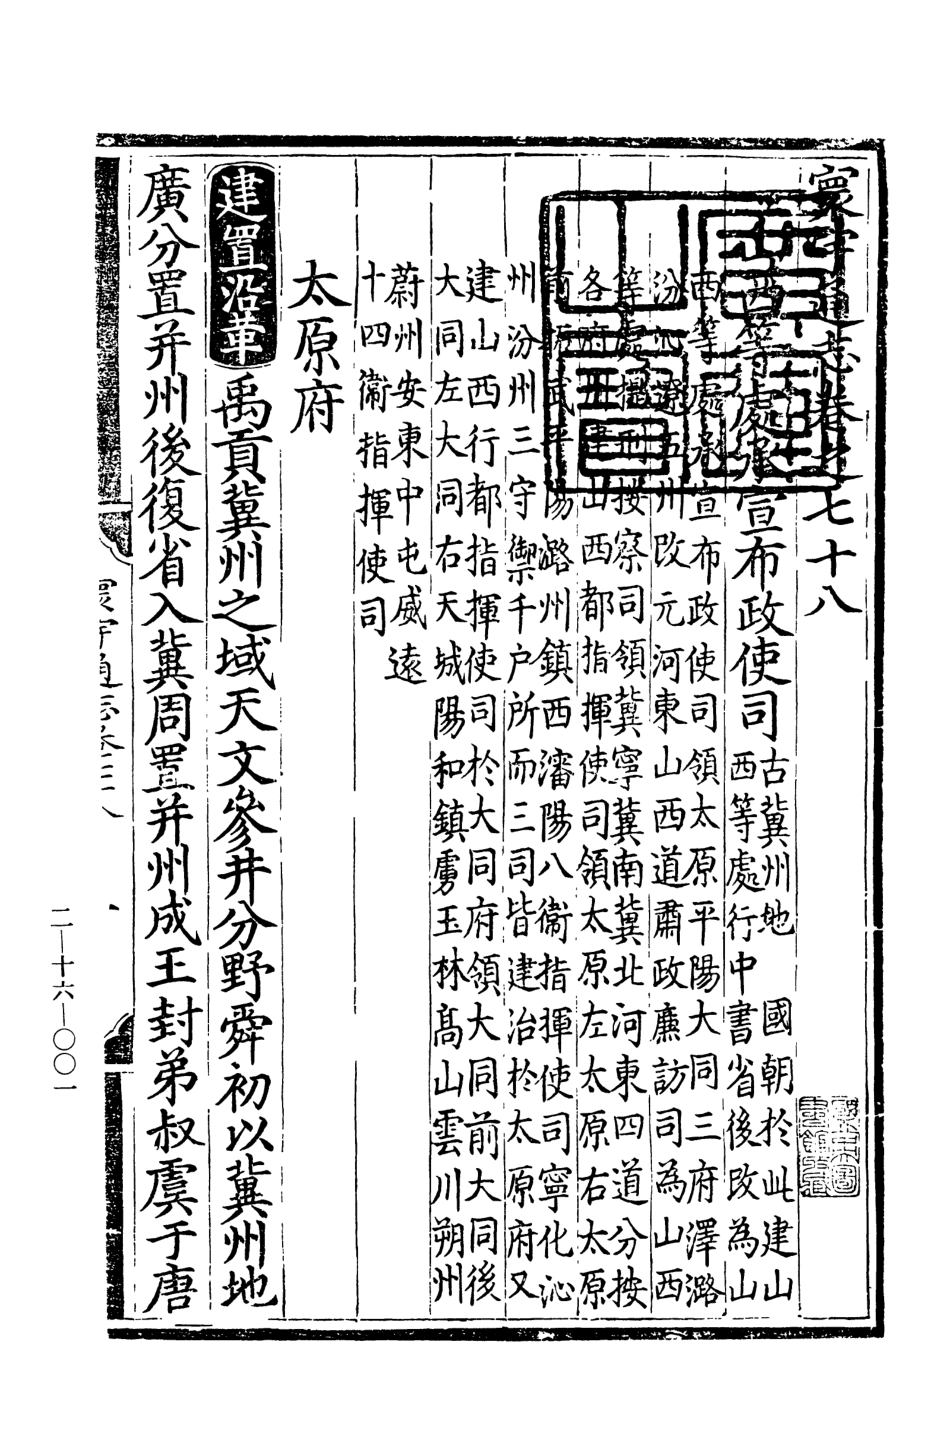 寰宇通志卷之七十八
山西等處承宣布政使司
古冀州地 國朝於此建山
西等處行中書省後改為山
西等處承宣布政使司領太原平陽大同三府澤潞
汾沁遼五州改元河東山西道肅政廉訪司為山西
等處提刑按察司領冀寧冀南冀北河東四道分按
各府州建山西都指揮使司領太原左太原右太原
前振武平陽潞州鎮西瀋陽八衞指揮使司寧化沁
州汾州三守禦千户所而三司皆建治於太原府又
建山西行都指揮使司於大同府領大同前大同後
大同左大同右天城陽和鎮虜玉林高山雲川朔州
蔚州安東中屯威遠
十四衞指揮使司
太原府
建置沿革 禹貢冀州之域天文參井分野舜初以冀州地
廣分置并州後復省入冀周置并州成王封弟叔虞于唐
二—十六—〇〇一